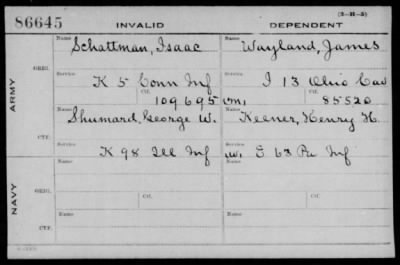 (3-H-5)
86645 INVALID DEPENDENT
Name Schattman, Isaac Name Wayland, James
ORIG.
Service K 5 Conn Inf Service I 13 Ohio Cav
Ctf. 109695 Ctf. 85520
ARMY
Name Shumard, George W. Name Keener, Henry H.
CTF.
Service K 98 Ill Inf Service G 63 Pa Inf
Name Name
ORIG.
Service Service
Ctf. Ctf.
NAVY
Name Name
CTF.